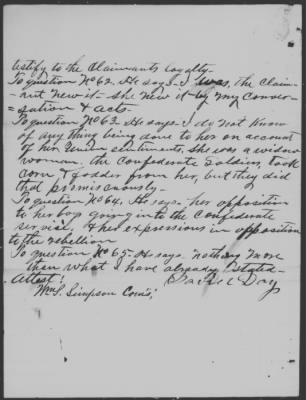 testify to the Claimants loyalty-
To question No 62. He says- I was, the Claim-
-ant new it- She new it by my conver-
=sation & acts-
To question No 63. He says- I do not know
of any thing being done to her on account
of her Union sentiments, She was a widow
woman, the Confederate Soldiers, took
corn & fodder from her, but they did
that promiscuously-
To question No 64. He says- her opposition
to her boys going into the Confederate
service, & her expressions in opposition
to the rebellion
To question No 65- He says- nothing more
than what I have already stated-
Attest! Day
Wm S. Simpson Com's,